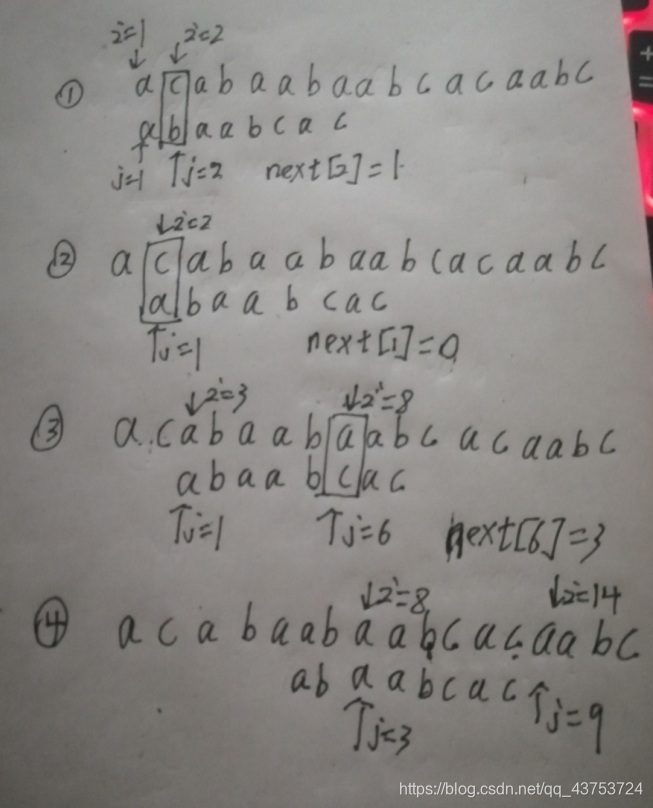 i=1 i=2
① a c a b a a b a a b c a c a a b c
a b a a b c a c
j=1 j=2 next[2]=1
i=2
② a c a b a a b a a b c a c a a b c
a b a a b c a c
j=1 next[1]=0
i=3 i=8
③ a c a b a a b a a b c a c a a b c
a b a a b c a c
j=1 j=6 next[6]=3
i=8 i=14
④ a c a b a a b a a b c a c a a b c
a b a a b c a c j=9
j=3
https://blog.csdn.net/qq_43753724